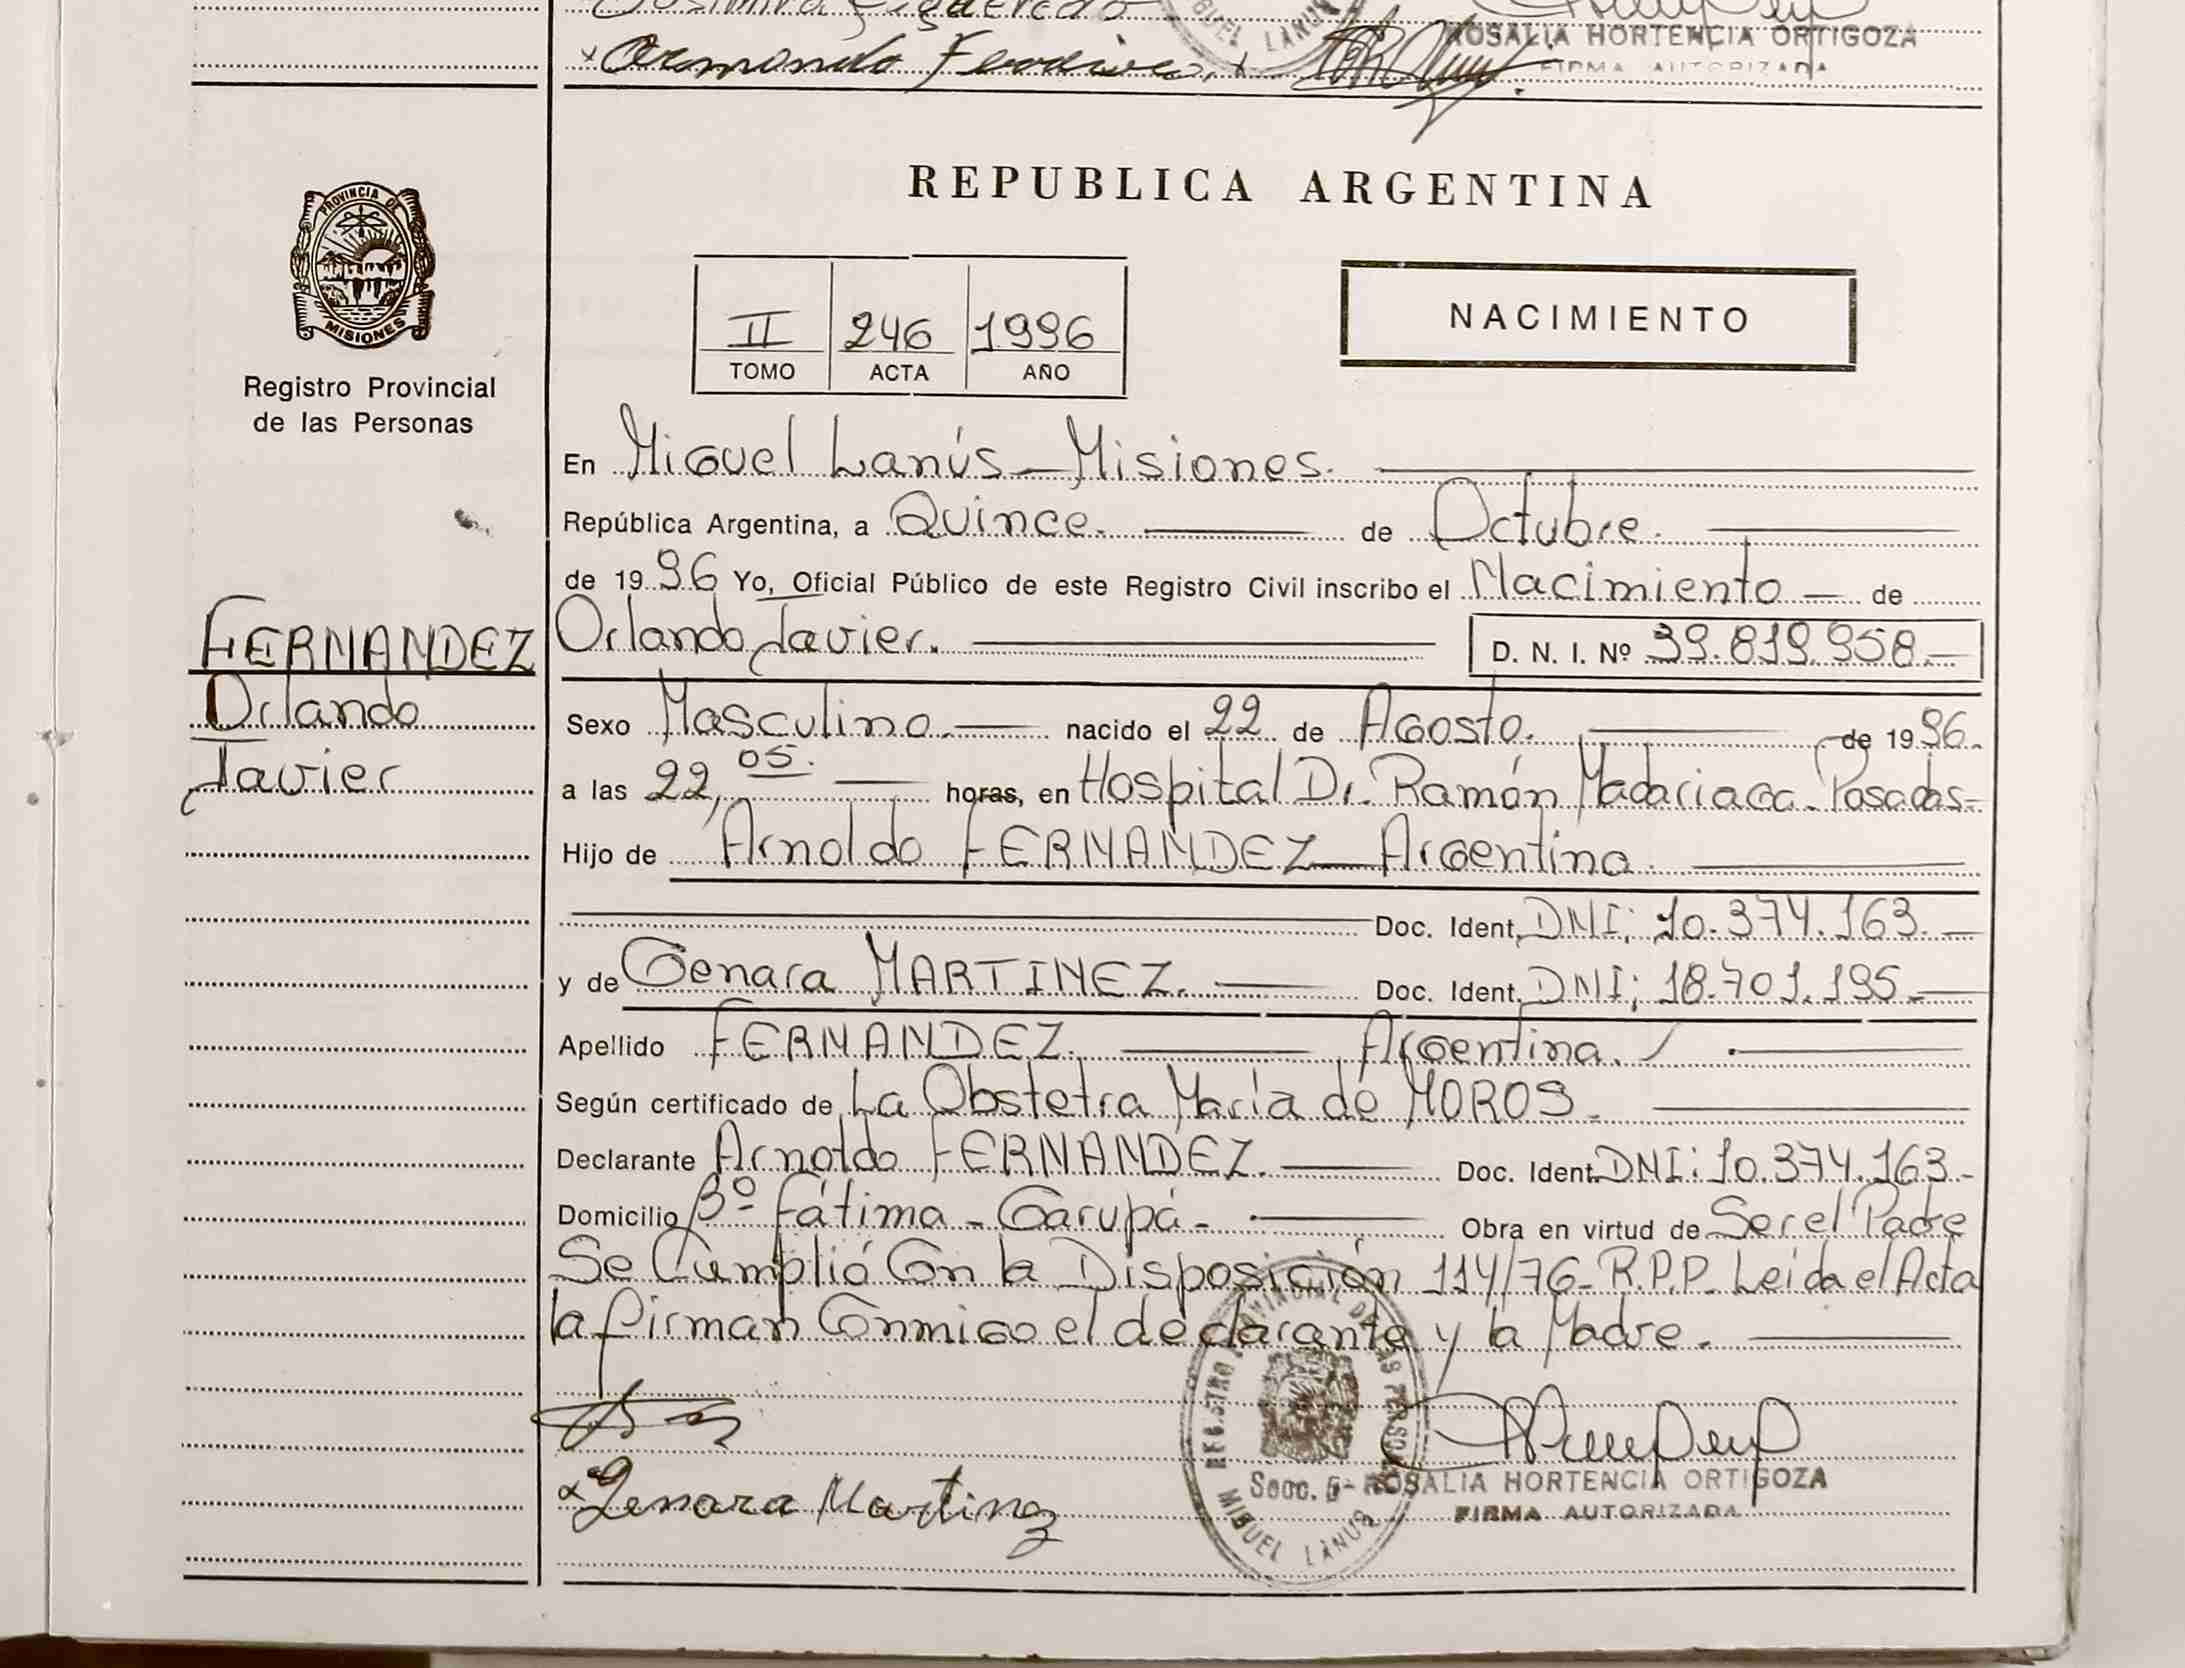 Armando
ROSALIA HORTENCIA ORTIGOZA
FIRMA AUTORIZADA
MIGUEL LANUS
PROVINCIA DE
MISIONES
Registro Provincial
de las Personas
REPUBLICA ARGENTINA
II 246 1996
TOMO ACTA AÑO
NACIMIENTO
En Miguel Lanús - Misiones.
República Argentina, a Quince. de Octubre.
de 1996 Yo, Oficial Público de este Registro Civil inscribo el Nacimiento — de
FERNANDEZ
Orlando
Javier
Orlando Javier. D. N. I. Nº 39.819.958.-
Sexo Masculino. nacido el 22 de Agosto. de 1996.
a las 22, 05. horas, en Hospital Dr. Ramón Madariaga - Posadas-
Hijo de Arnoldo FERNANDEZ - Argentino.
Doc. Ident. DNI; 10.374.163.-
y de Genara MARTINEZ. Doc. Ident. DNI; 18.701.195.-
Apellido FERNANDEZ. Argentina.
Según certificado de La Obstetra María de MOROS.
Declarante Arnoldo FERNANDEZ. Doc. Ident. DNI: 10.374.163-
Domicilio Bº Fátima - Garupá - Obra en virtud de Ser el Padre
Se Cumplió Con la Disposición 114/76- R.P.P. Leída el Acta
la firman Conmigo el declarante y la Madre.
REGISTRO PROVINCIAL DE LAS PERSONAS
MIGUEL LANUS
Secc. 5- ROSALIA HORTENCIA ORTIGOZA
FIRMA AUTORIZADA
Genara Martinez